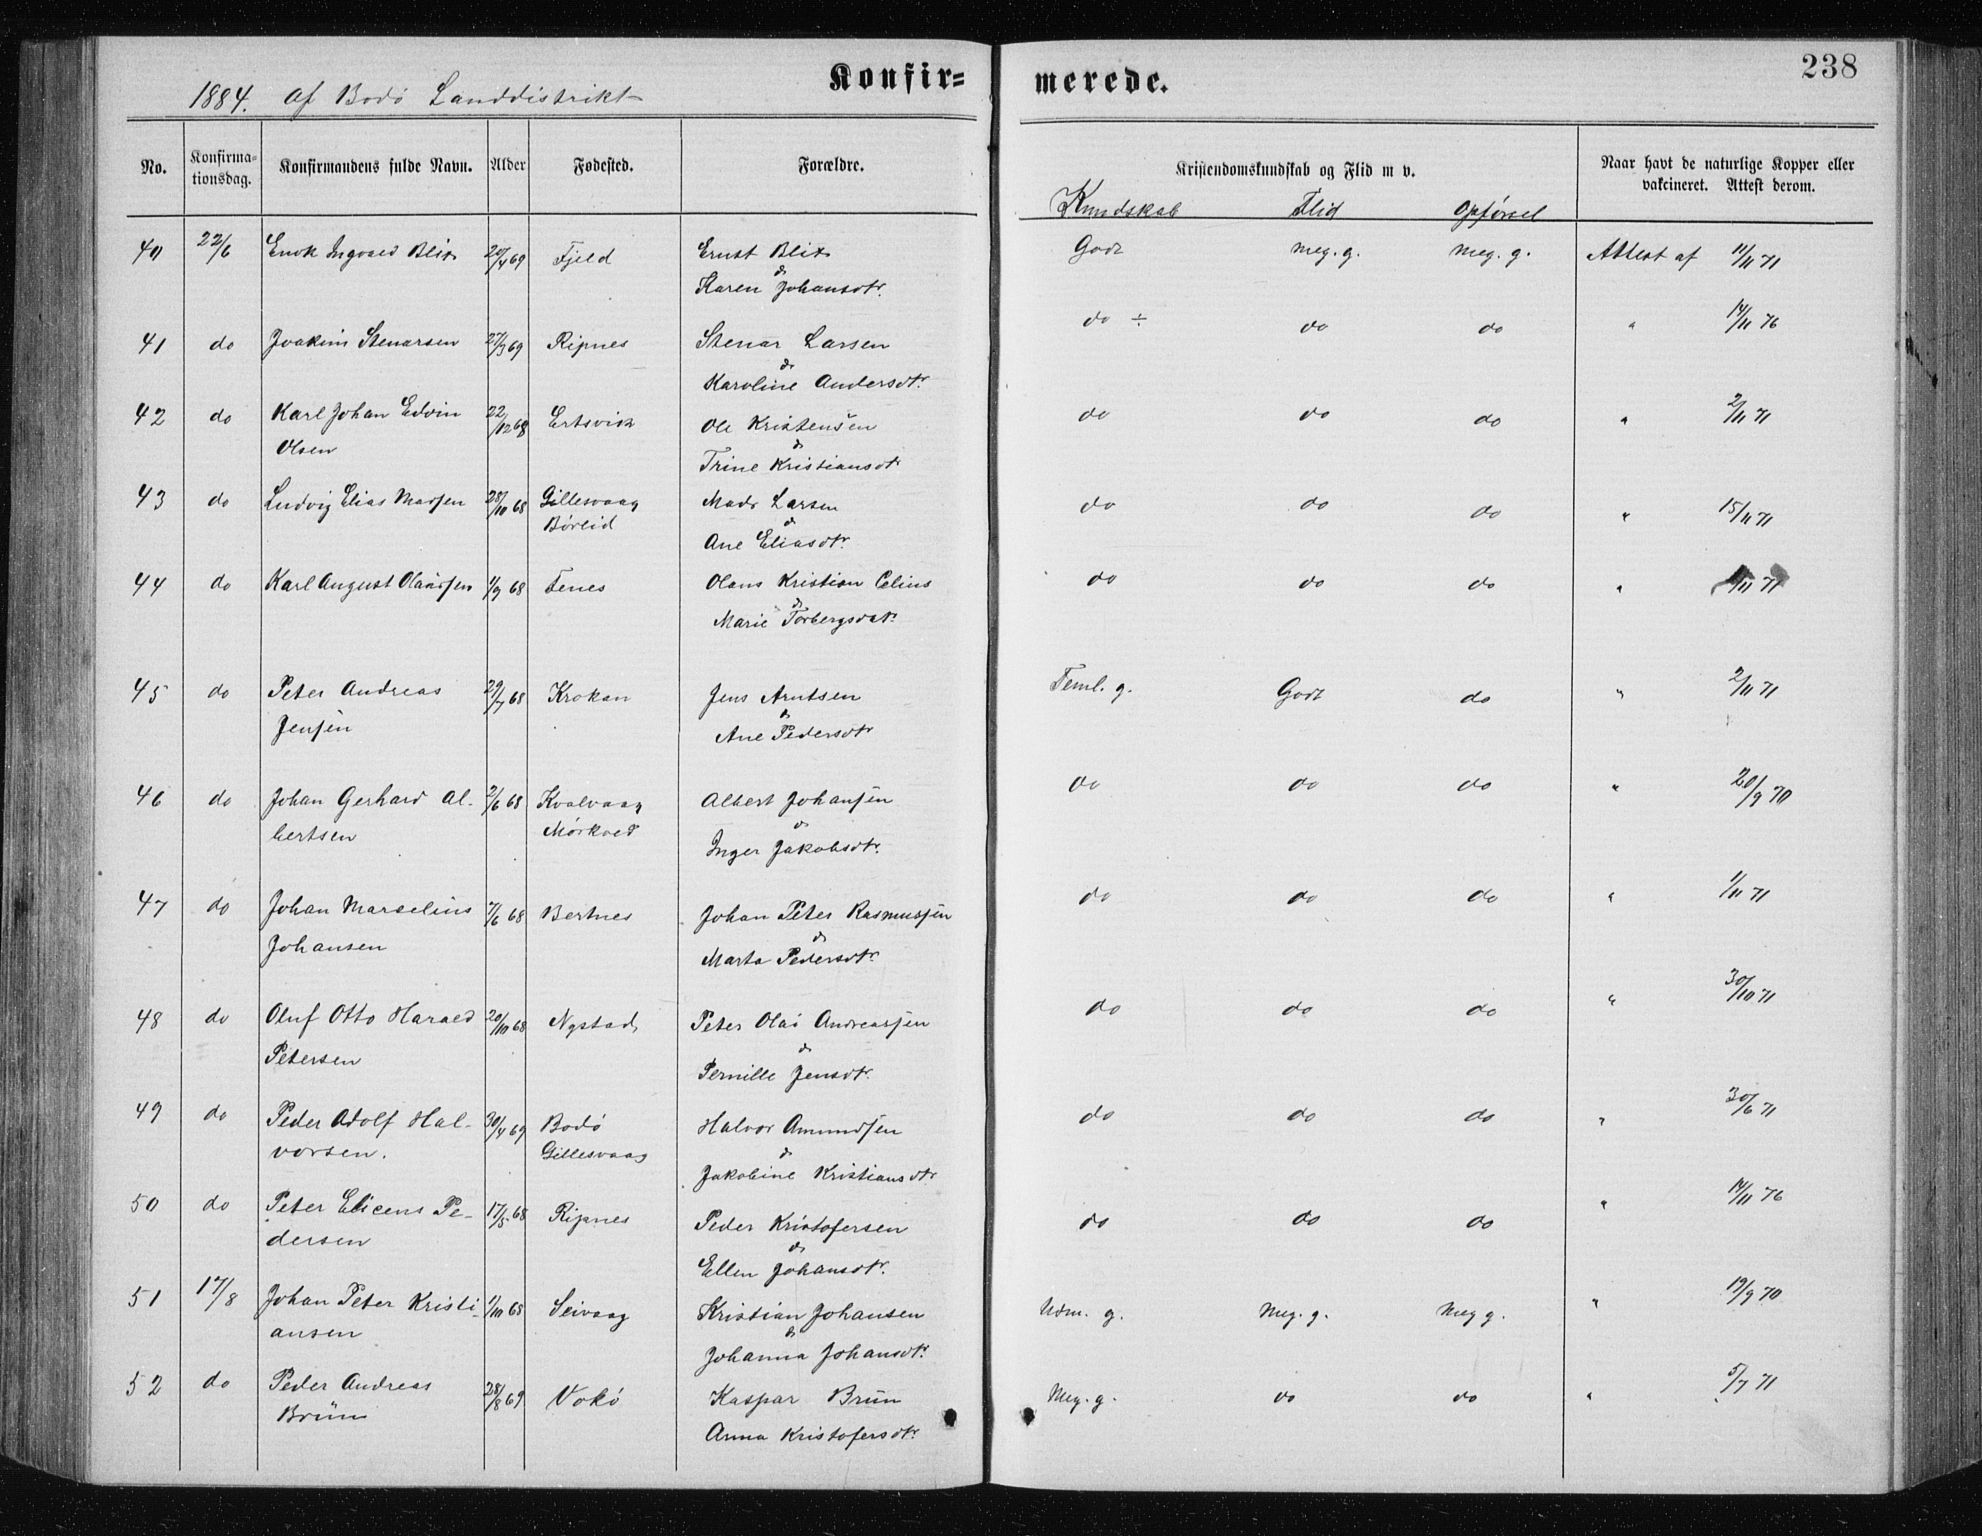 238
Konfir=
merede.
1884. Af Bodö Landdistrikt
No. Konfirma-tionsdag. Konfirmandens fulde Navn. Alder Fødested. Forældre. Kristendomskundskab og Flid m v. Naar havt de naturlige Kopper eller vakcineret. Attest derom.
Kundskab Flid Opførsel
40 22/6 Enok Ingvald Blix 20/4 69 Fjeld Ernst Blix Godt meg. g. meg. g. Attest af 11/11 71
& Karen Johansdtr.
41 do Joakim Stenarsen 27/3 69 Ripnes Stenar Larsen do ÷ do do " 14/11 76
& Karoline Andersdtr.
42 do Karl Johan Edvin 22/12 68 Ertsvik Ole Kristensen do do do " 2/11 71
Olsen & Trine Kristiansdtr
43 do Ludvig Elias Madsen 28/10 68 Gillesvaag Mads Larsen do do do " 15/11 71
Børlid & Ane Eliasdtr.
44 do Karl August Olausen 1/9 68 Fenes Olaus Kristian Celius do do do " /11 71
& Marie Torbergsdatr.
45 do Peter Andreas 29/7 68 Krokan Jens Arntsen Teml. g. Godt do " 2/11 71
Jensen & Ane Pedersdtr
46 do Johan Gerhard Al- 2/6 68 Kvalvaag Albert Johansen do do do " 20/9 70
bertsen Mörkved & Inger Jakobsdtr.
47 do Johan Marselius 7/6 68 Bertnes Johan Peter Rasmussen do do do " 1/11 71
Johansen & Marta Pedersdtr.
48 do Oluf Otto Harald 20/10 68 Nystad Peter Olai Andreassen do do do " 30/10 71
Petersen & Pernille Jensdtr.
49 do Peder Adolf Hal- 30/4 69 Bodö Halvor Amundsen do do do " 30/6 71
vorsen. Gillesvaag & Jakobine Kristiansdtr
50 do Peter Elicens Pe- 17/5 68 Ripnes Peder Kristofersen do do do " 14/11 76
dersen & Ellen Johansdtr.
51 17/8 Johan Peter Kristi- 1/10 68 Seivaag Kristian Johansen Udm. g. Meg. g. Meg g. " 19/9 70
ansen & Johanna Johansdtr.
52 do Peder Andreas 28/8 69 Vokö Kaspar Brun Meg. g. do do " 5/7 71
Brün Anna Kristofersdtr.